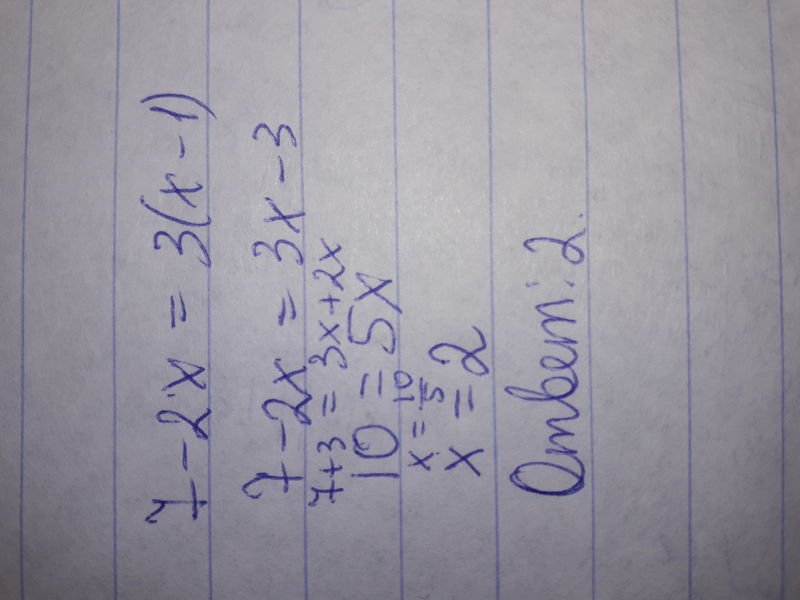 7 - 2x = 3(x - 1)
7 - 2x = 3x - 3
7 + 3 = 3x + 2x
10 = 5x
x = 10/5
x = 2
Ответ: 2.